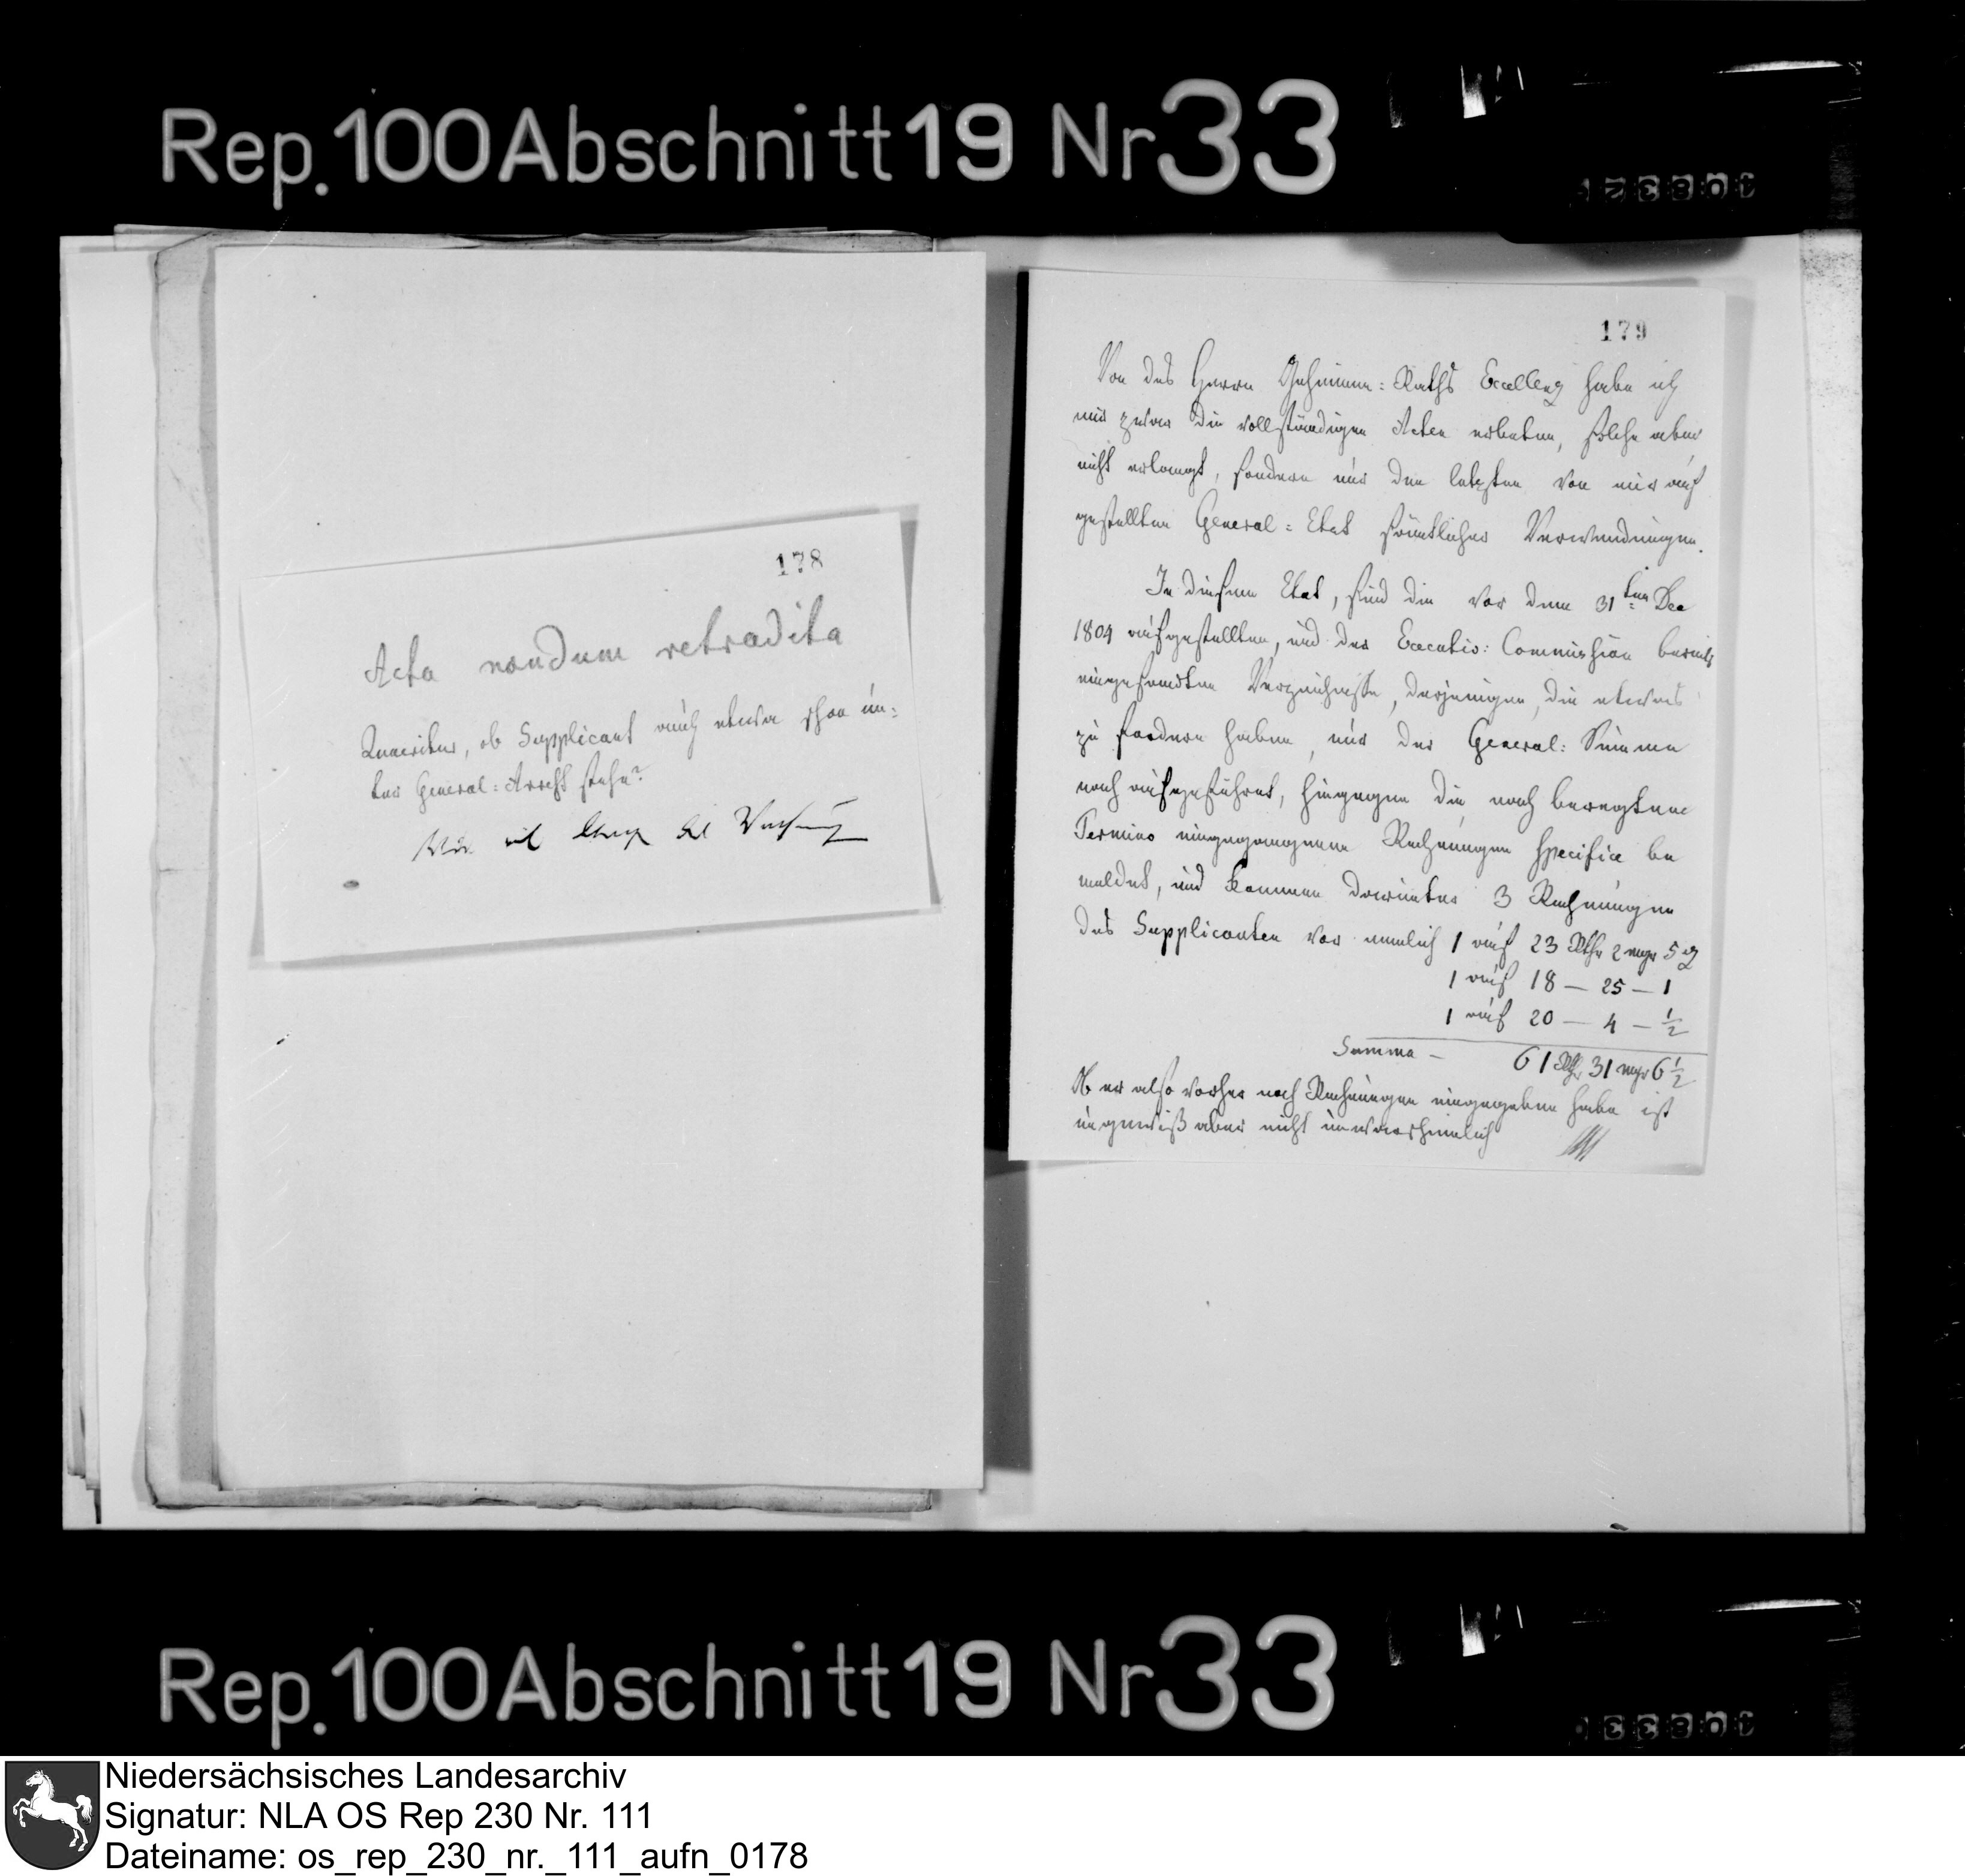 Rep. 100 Abschnitt 19 Nr 33
178
Acta nondum retradita
Quaeritur, ob Supplicant auch etwa schon un=
ter General=Arrest stehe?
179
Von des Herrn Geheimen=Raths Excellenz habe ich
mir zwar die vollständigen Acten erbeten, solche aber
nicht erlangt, sondern nur den letzten von mir auf
gestellten General=Etat sämtlicher Verwendungen.
In diesem Etat, sind die vor dem 31ten Dec
1804 aufgestellten, und der Executio: Commission bereits
eingesandten Verzeichnisse, derjenigen, die etwas
zu fordern haben, nur der General: Summe
nach aufgeführet, hingegen die nach beregtem
Termino eingegangenen Rechnungen specifice be
meldet, und kommen darunter 3 Rechnungen
des Supplicanten vor nemlich 1 auf 23 Rthr 2 mgr 5 ₰
1 auf 18 — 25 — 1
1 auf 20 — 4 — ½
Summa — 61 Rthr 31 mgr 6 ½
Ob er also vorher noch Rechnungen eingegeben habe ist
ungewiß aber nicht unwarscheinlich
Rep. 100 Abschnitt 19 Nr 33
Niedersächsisches Landesarchiv
Signatur: NLA OS Rep 230 Nr. 111
Dateiname: os_rep_230_nr._111_aufn_0178